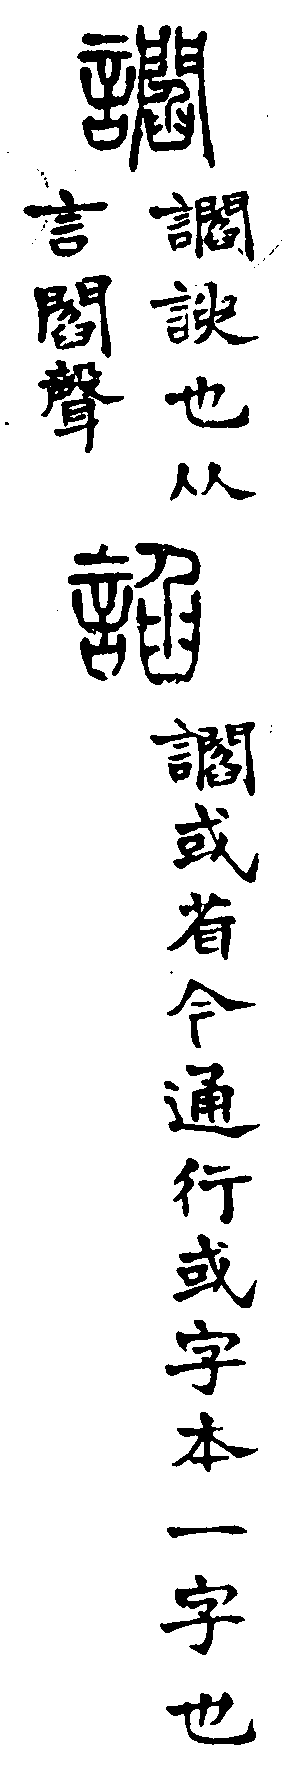 讇
讇諛也从
言閻聲
諂
讇或省今通行或字本一字也